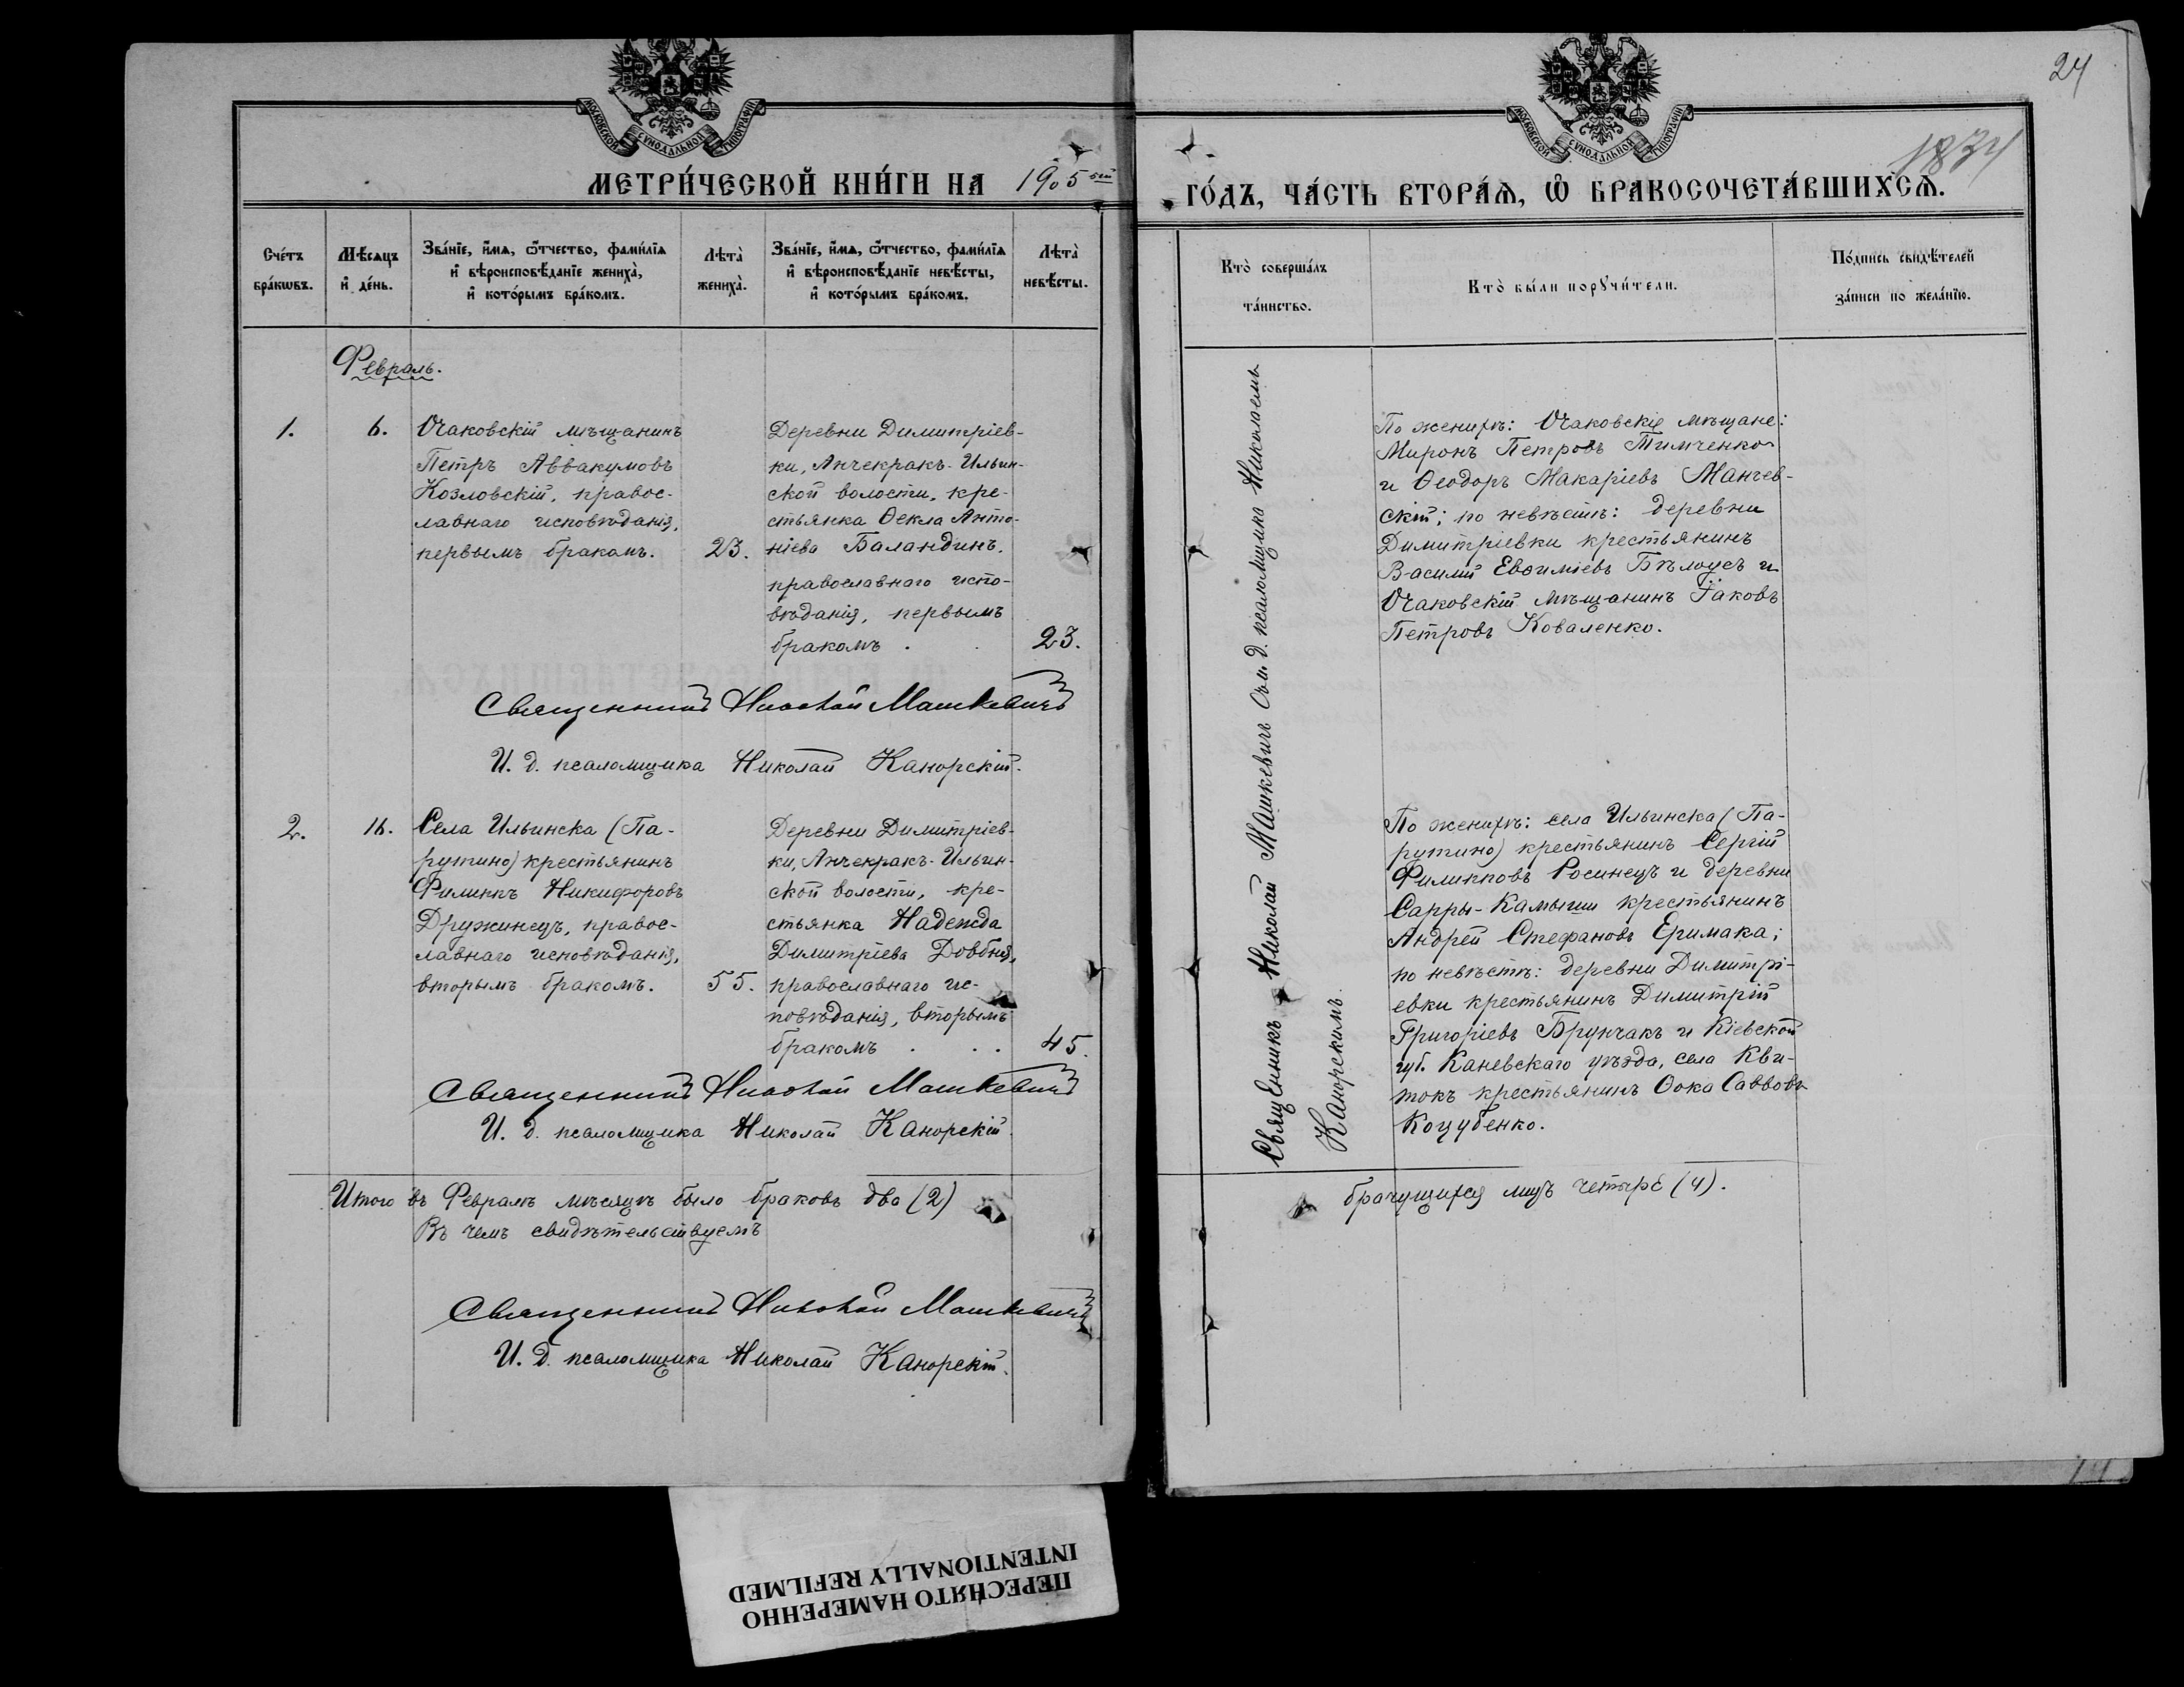 МОСКОВСКОЙ СУНОДАЛЬНОЙ ТИПОГРАФІИ
МЕТРИ́ЧЕСКОЙ КНИ́ГИ НА 1905 ый
Сче́тъ бра́кѡвъ.
Мѣ́сѧцъ и҆ де́нь.
Зва́нїе, и҆́мѧ, ѻ҆́тчество, фами́лїѧ и҆ вѣроисповѣ́данїе жениха̀, и҆ кото́рымъ бра́комъ.
Лѣта̀ жениха̀.
Зва́нїе, и҆́мѧ, ѻ҆́тчество, фами́лїѧ и҆ вѣроисповѣ́данїе невѣ́сты, и҆ кото́рымъ бра́комъ.
Лѣта̀ невѣ́сты.
Февраль.
1.
6.
Очаковскій мѣщанинъ
Петръ Аввакумовъ
Козловскій, правос-
лавнаго исповѣданія,
первымъ бракомъ.
23.
Деревни Димитріев-
ки, Анчекракъ-Ильин-
ской волости, кре-
стьянка Ѳекла Анто-
ніева Баландинъ,
православнаго испо-
вѣданія, первымъ
бракомъ . .
23.
Священникъ Николай Машкевичъ
И. д. псаломщика Николай Канорскій.
2.
16.
Села Ильинска (Па-
рутино) крестьянинъ
Филиппъ Никифоровъ
Дружинецъ, правос-
лавнаго исповѣданія,
вторымъ бракомъ.
55.
Деревни Димитріев-
ки, Анчекракъ-Ильин-
ской волости, кре-
стьянка Надежда
Димитріева Довбня,
православнаго ис-
повѣданія, вторымъ
бракомъ . . .
45.
Священникъ Николай Машкевичъ
И. д. псаломщика Николай Канорскій.
Итого въ Февралѣ мѣсяцѣ было браковъ два (2)
Въ чемъ свидѣтельствуемъ
Священникъ Николай Машкевичъ
И. д. псаломщика Николай Канорскій.
24
1834
МОСКОВСКОЙ СУНОДАЛЬНОЙ ТИПОГРАФІИ
ГО́ДЪ, ЧА́СТЬ ВТОРА́Ѧ, Ѽ БРАКОСОЧЕТА́ВШИХСѦ.
Кто̀ соверша́лъ та́инство.
Кто̀ бы́ли порꙋчи́тели.
По́дпись свидѣ́телей за́писи по жела́нїю.
Священникъ Николай Машкевичъ съ и. д. псаломщика Николаемъ
Канорскимъ.
По женихѣ: Очаковскіе мѣщане:
Миронъ Петровъ Тимченко
и Ѳеодоръ Макаріевъ Манчев-
скій; по невѣстѣ: деревни
Димитріевки крестьянинъ
Василій Евѳиміевъ Бѣлоусъ и
Очаковскій мѣщанинъ Іаковъ
Петровъ Коваленко.
По женихѣ: села Ильинска (Па-
рутино) крестьянинъ Сергій
Филипповъ Росинецъ и деревни
Сарры-Камыши крестьянинъ
Андрей Стефановъ Ермака;
по невѣстѣ: деревни Димитрі-
евки крестьянинъ Димитрій
Григоріевъ Брунчакъ и Кіевской
губ. Каневскаго уѣзда, села Кви-
токъ крестьянинъ Ѳока Саввовъ
Коцубенко.
брачущихся лицъ четыре (4).
ПЕРЕСНЯТО НАМЕРЕННО
INTENTIONALLY REFILMED